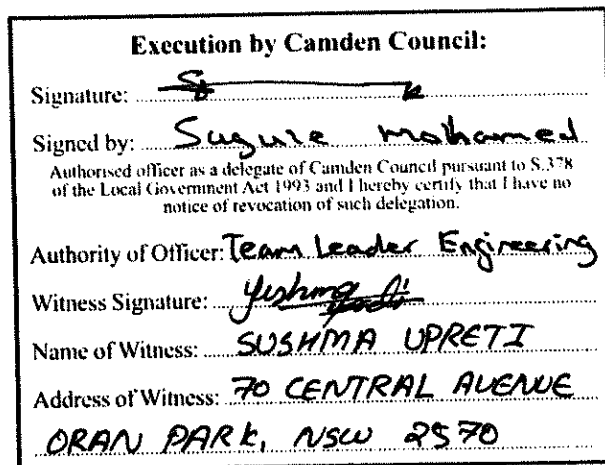 Execution by Camden Council:
Signature:
Signed by: Sugule Mohamed
Authorised officer as a delegate of Camden Council pursuant to S.378
of the Local Government Act 1993 and I hereby certify that I have no
notice of revocation of such delegation.
Authority of Officer: Team Leader Engineering
Witness Signature:
Name of Witness: SUSHMA UPRETI
Address of Witness: 70 CENTRAL AVENUE
ORAN PARK, NSW 2570